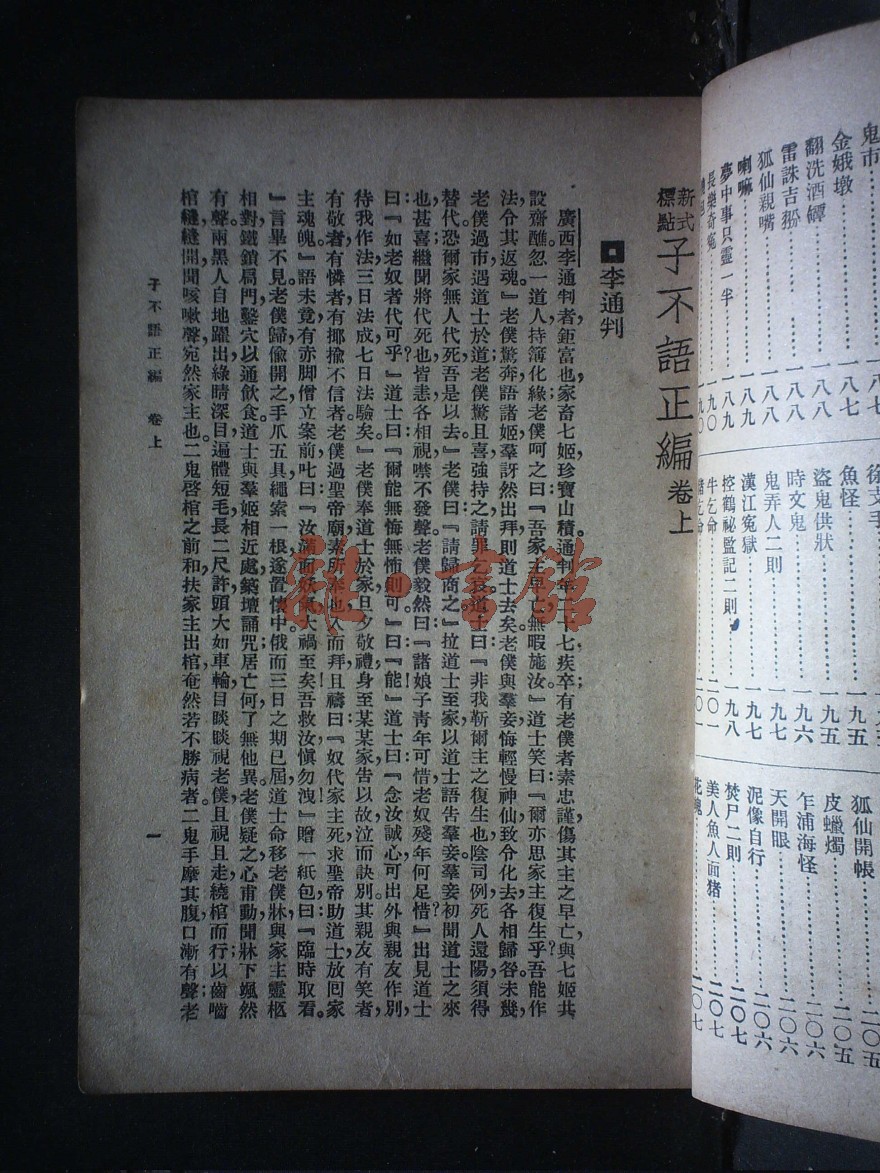 鬼市
金娥墩……一八七
翻洗酒罈……一八八
雷誅吉……一八八
狐仙親嘴……一八八
喇嘛……一八九
夢中事只靈一半……一八九
長樂奇冤……一九〇
徐支手
魚怪……一九五
盜鬼供狀……一九五
時文鬼……一九六
鬼弄人二則……一九七
漢江冤獄……一九七
控鶴祕監記二則……一九八
牛乞命……二〇一
猪乞命……二〇一
狐仙開帳……二〇五
皮蠟燭……二〇五
乍浦海怪……二〇六
天開眼……二〇六
泥像自行……二〇六
焚尸二則……二〇七
美人魚人面猪……二〇七
花魄……二〇七
新式標點 子不語正編 卷上
李通判
廣西李通判者,鉅富也,家畜七姬,珍寶山積。通判年二十七疾卒;有老僕者,素忠謹,傷其主之早亡,與七姬共
設齋醮。忽一道人持簿化緣,老僕呵之曰:『吾家主早亡,無暇施汝。』道士笑曰:『爾亦思家主復生乎?吾能作
法,令其返魂。』老僕驚,奔語諸姬,羣訝然出拜,則道士去矣。老僕與羣妾悔輕慢神仙,致令化去,各相歸咎。未幾,
老僕過市,遇道士於道,老僕驚且喜,強持之,請罪乞哀。道士曰:『非我靳爾主之復生也,陰司例:死人還陽,須得
替代。恐爾家無人代死,吾是以去。』老僕曰:『請歸商之。』拉道士至家,以道士語告羣妾。羣妾初聞道士之來
也,甚喜;繼聞將代死也,皆恚,各相視噤不發聲。老僕毅然曰:『諸娘子青年可惜,老奴殘年何足惜?』出見道士
曰:『如老奴者代可乎?』道士曰:『爾能無悔無怖則可。』曰:『能。』道士曰:『念汝誠心,可出外與親友作別,
待我作法,三日法成,七日法驗矣。』老僕奉道士於家,旦夕敬禮,身至某某家,告以故,泣而訣別。其親友有笑者,
有敬者,有憐者,有揶揄不信者。老僕過聖帝廟,素所奉也,入而拜且禱曰:『奴代家主死,求聖帝助道士放囘家
主魂魄。』語未竟,有赤脚僧立案前叱曰:『汝滿面妖氣,大禍至矣!吾救汝,愼勿洩!』贈一紙包曰:『臨時取看。
』言畢不見。老僕歸,偸開之,手爪五具,繩索一根,遂置懷中。俄而三日之期已屆,道士命移老僕牀與家主靈柩
相對,鐵鎖扃門,鑿穴以通飮食。道士與羣姬相近處,築壇誦咒;居亡何,了無他異。老僕疑之,心甫動,聞牀下颯然
有聲,兩黑人自地躍出,綠睛深目,遍體短毛,長二尺許,頭大如車輪,目睒睒視老僕,且視且走,繞棺而行,以齒嚙
棺縫,縫開,聞咳嗽聲,宛然家主也。二鬼啓棺之前,和扶家主出棺,奄然若不勝病者。二鬼手摩其腹,口漸有聲;老
子不語正編 卷上
一
雜·書館